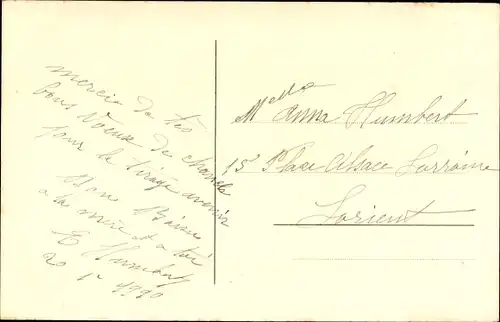 merci de tes
bons voeux de chance
pour le tirage avenir
Mon
a ta mère et a toi
E Humbert
20
Melle Anna Humbert
15 Place Alsace Lorraine
Lorient